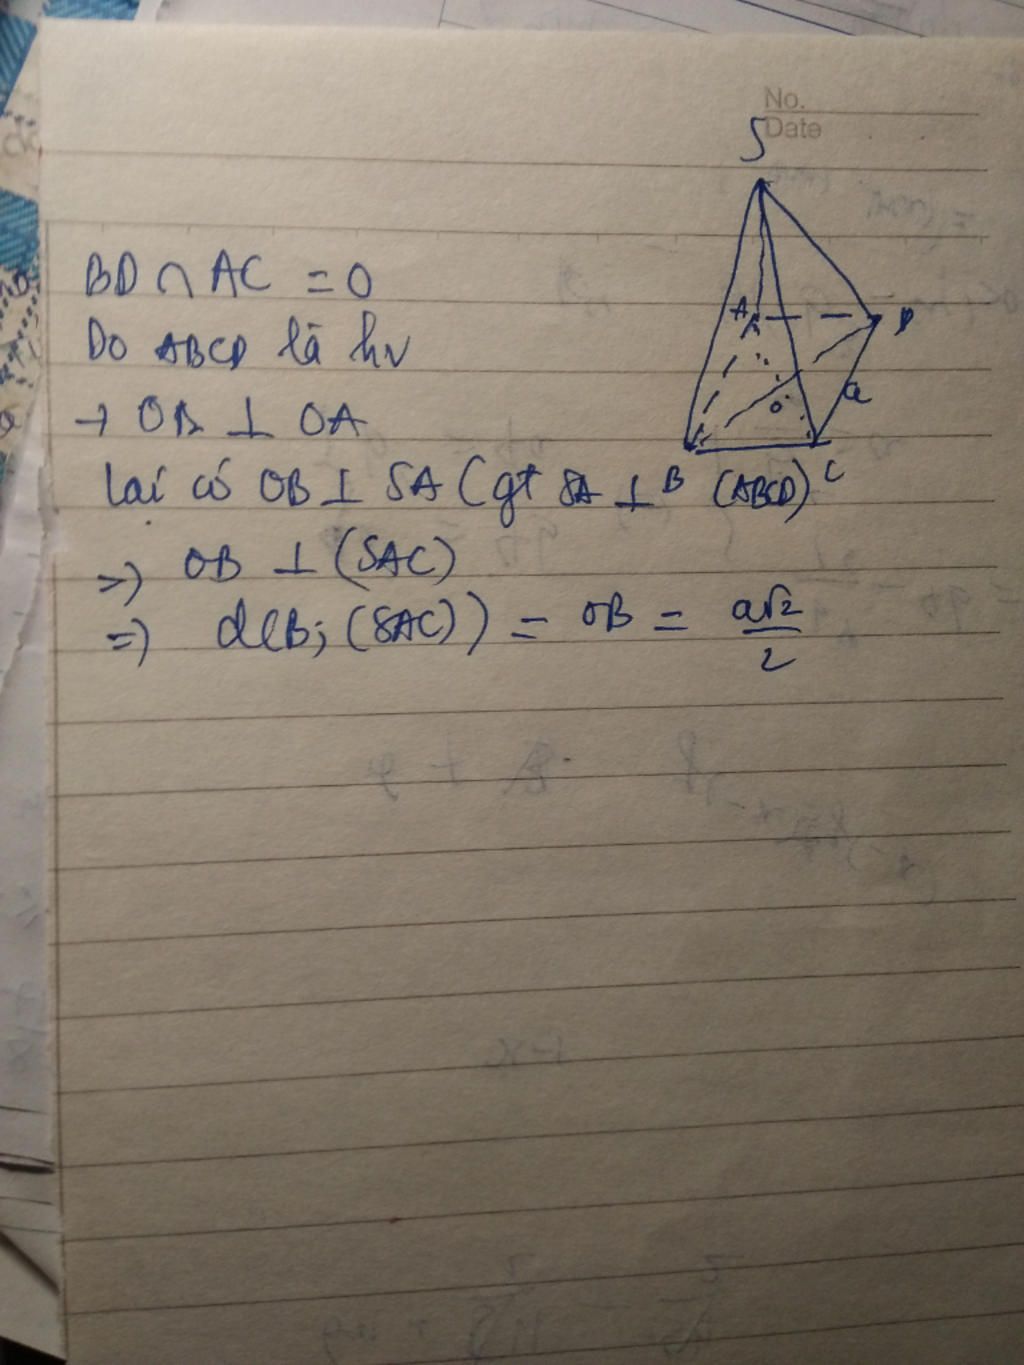 No.
Date
S
A
D
a
O
B
C
BD ∩ AC = O
Do ABCD là hv
→ OB ⊥ OA
lại có OB ⊥ SA (gt SA ⊥ (ABCD)
=> OB ⊥ (SAC)
=> d(B; (SAC)) = OB = a√2/2